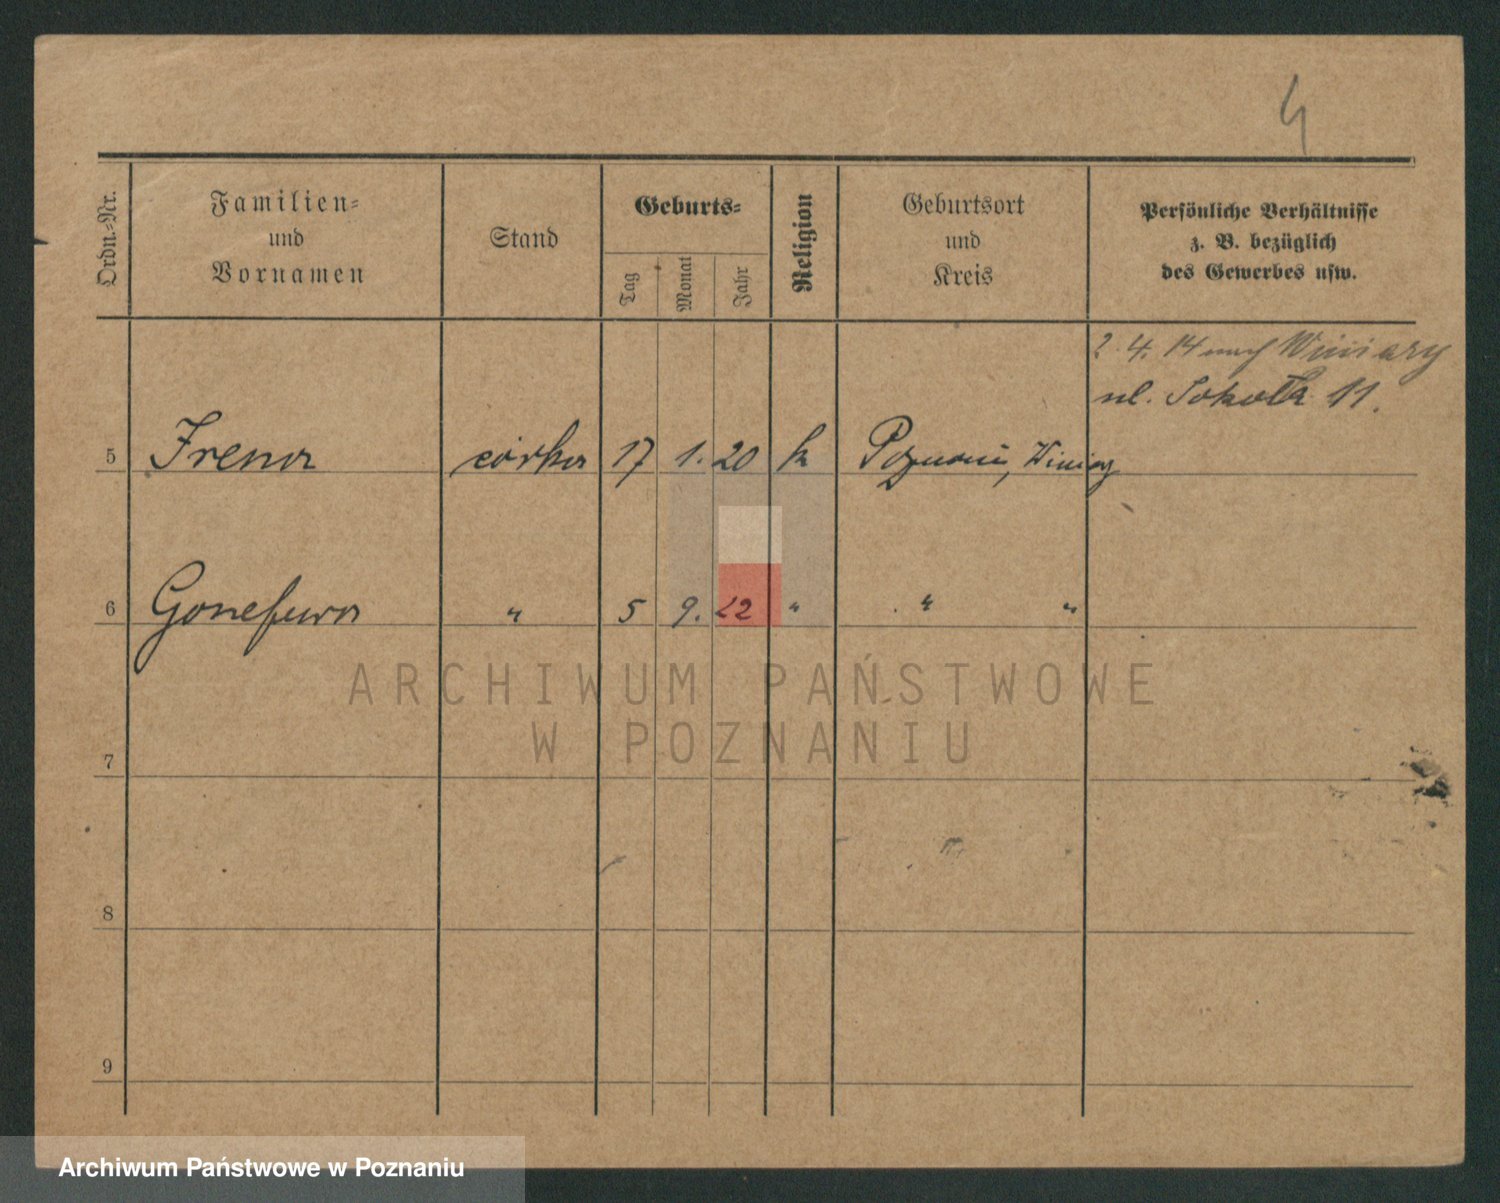 4
Ordn.-Nr.
Familien-
und
Vornamen
Stand
Geburts-
Tag
Monat
Jahr
Religion
Geburtsort
und
Kreis
Persönliche Verhältnisse
z. B. bezüglich
des Gewerbes usw.
2. 4. 14 nach Winiary
ul. Sokoła 11.
5 Irena córka 17 1. 20 k Poznań, Winiary
6 Genofewa " 5 9. 22 " " "
7
8
9
ARCHIWUM PAŃSTWOWE
W POZNANIU
Archiwum Państwowe w Poznaniu